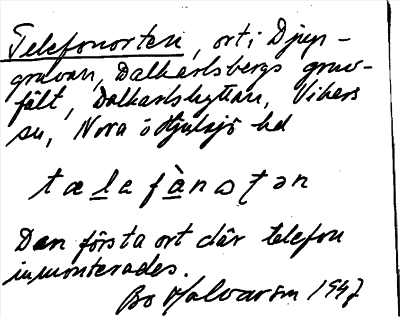 Telefonorten, ort i Djup-
gruvan, Dalkarlsbergs gruv-
fält, Dalkarlshyttan, Vikers
sn, Nora o Hjulsjö hd
tælefànoṭən
Den första ort där telefon
inmonterades.
Bo Halvarson 1947